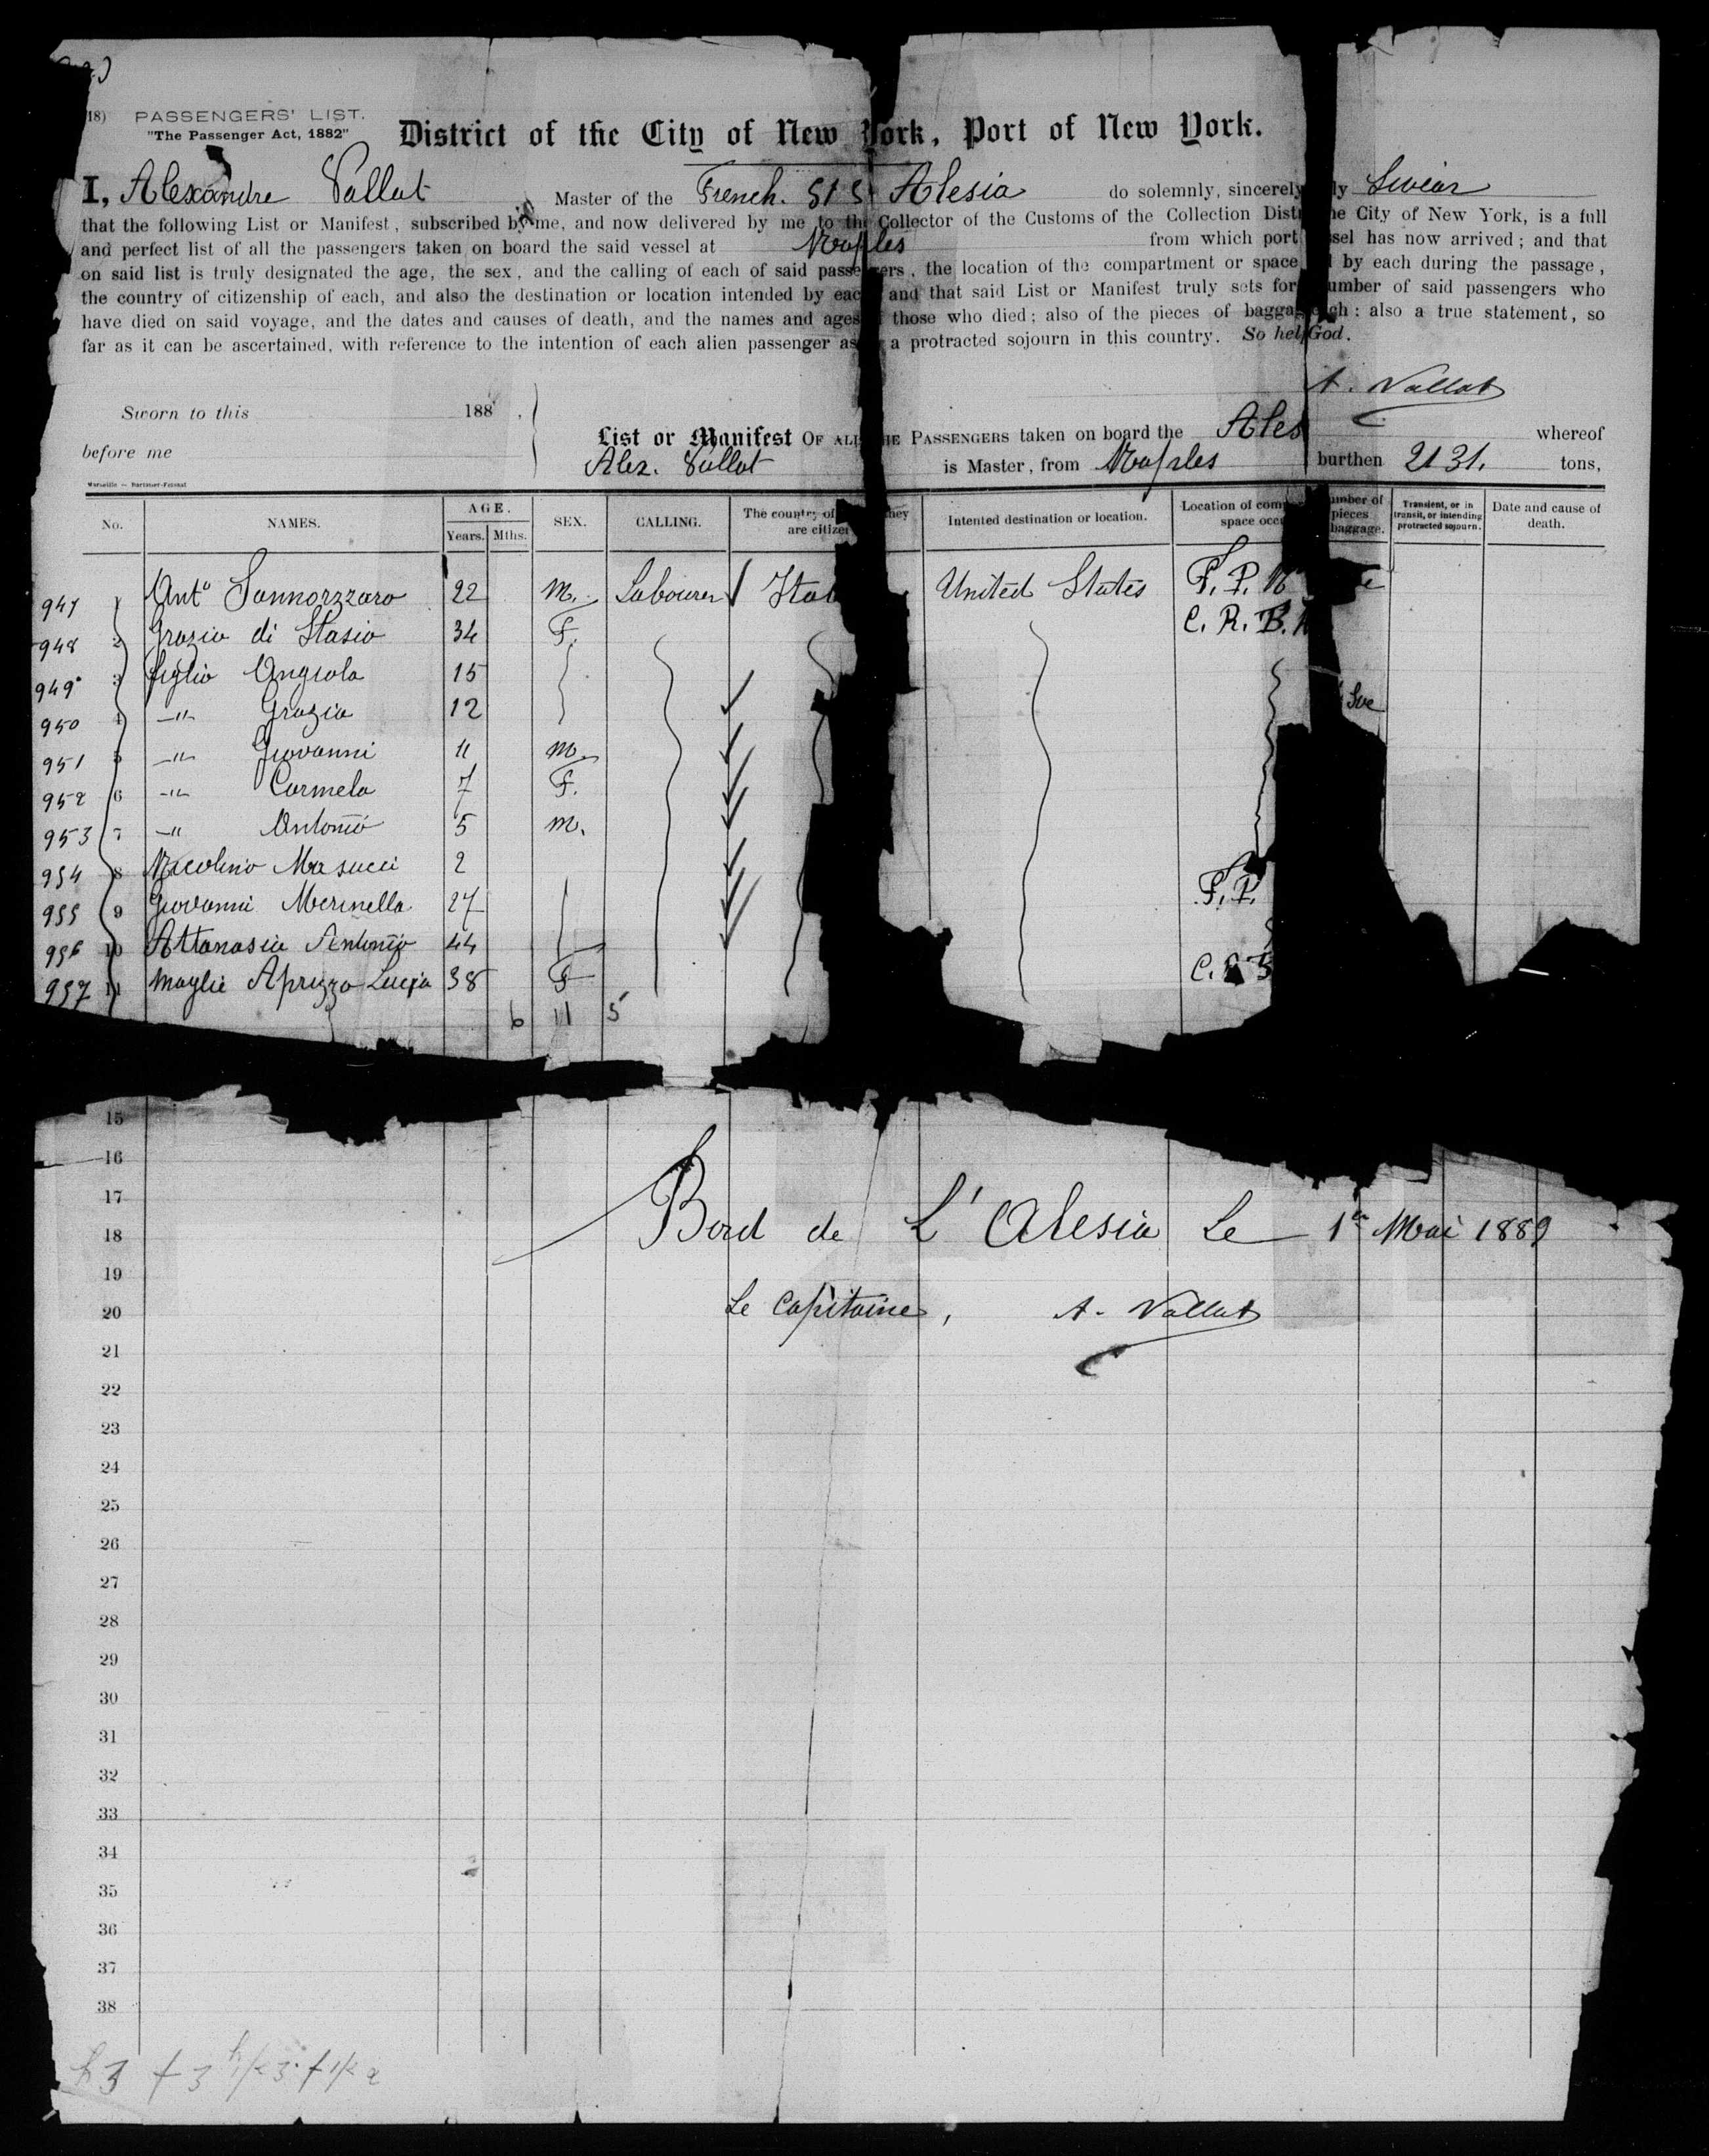 18) PASSENGERS' LIST.
"The Passenger Act, 1882"
District of the City of New York, Port of New York.
I, Alexandre Vallat Master of the French. S/S Alesia do solemnly, sincerely ly Swear
that the following List or Manifest, subscribed by me, and now delivered by me to the Collector of the Customs of the Collection Dist he City of New York, is a full
and perfect list of all the passengers taken on board the said vessel at Naples from which port ssel has now arrived; and that
on said list is truly designated the age, the sex, and the calling of each of said passe gers, the location of the compartment or space d by each during the passage,
the country of citizenship of each, and also the destination or location intended by eac and that said List or Manifest truly sets for umber of said passengers who
have died on said voyage, and the dates and causes of death, and the names and ages f those who died; also of the pieces of baggag each: also a true statement, so
far as it can be ascertained, with reference to the intention of each alien passenger as a protracted sojourn in this country. So help God.
A. Vallat
Sworn to this 188 ,
before me
List or Manifest OF ALL THE PASSENGERS taken on board the Ales whereof
Alex. Vallat is Master, from Naples burthen 2131. tons,
Marseille
No. NAMES. AGE. Years. Mths. SEX. CALLING. The country of hey are citizen Intented destination or location. Location of comp space occu umber of pieces baggage. Transient, or in transit, or intending protracted sojourn. Date and cause of death.
947 1 Anto Sannorzzaro 22 M. Labourer Ital United States F. P. N e
948 2 Grazia di Stasio 34 F. C. R. B.
949 3 figlia Angiola 15
950 4 -"- Grazia 12 Sve
951 5 -"- Giovanni 11 M.
952 6 -"- Carmela 7 F.
953 7 -"- Antonio 5 M.
954 8 Nicolino Masucci 2
955 9 Giovanni Merinella 27 F. P.
956 10 Attanasia Antonio 44
957 11 Moglie Aprizzo Lucia 38 F C. R B
6 11 5
15
16
17
18 Bord de L'Alesia Le 1er Mai 1889
19
20 Le Capitaine, A. Vallat
21
22
23
24
25
26
27
28
29
30
31
32
33
34
35
36
37
38